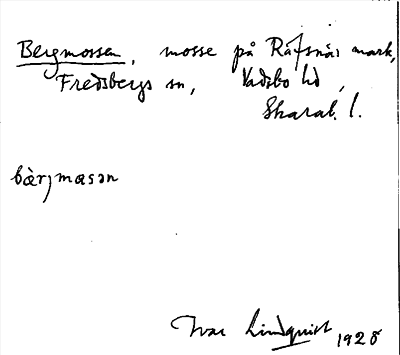 Bergmossen, mosse på Räfsnäs mark,
Fredsbergs sn, Vadsbo hd,
Skarab. l.
bàrjmasən
Ivar Lindquist 1928